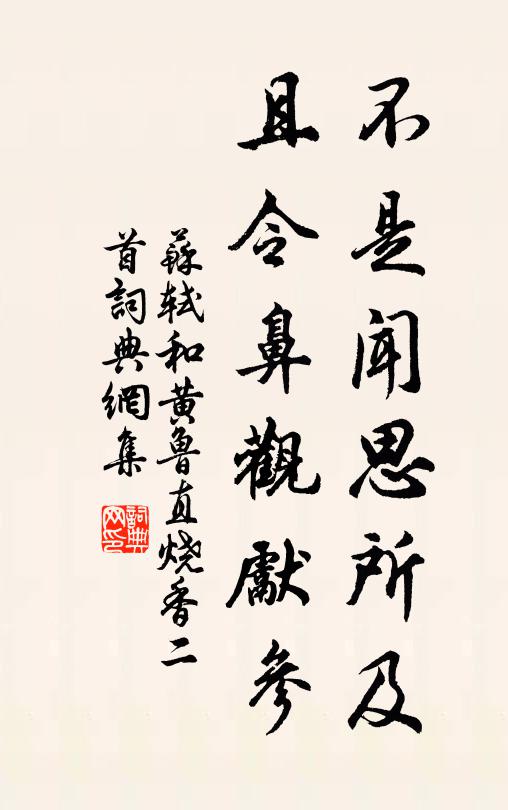 不是聞思所及
且令鼻觀獻參
蘇軾和黃魯直燒香二
首詞典網集
詞典
网印